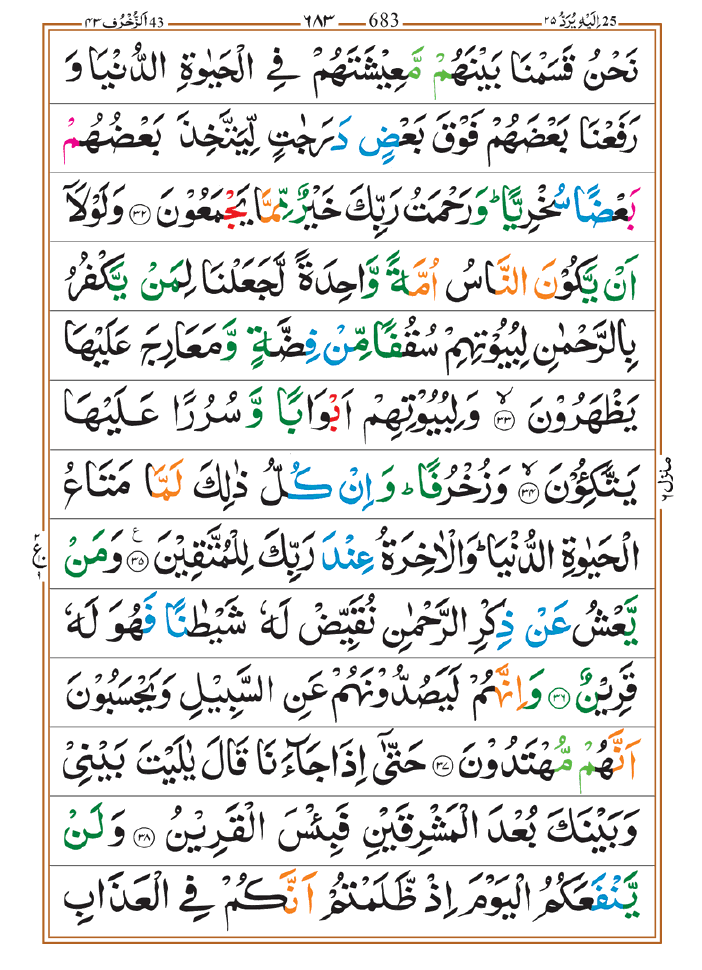 اَلزُّخْرُف 43 ٤٣ ٦٨٣ 683 اِلَيْهِ يُرَدُّ 25 ٢٥
نَحْنُ قَسَمْنَا بَيْنَهُمْ مَّعِيْشَتَهُمْ فِي الْحَيٰوةِ الدُّنْيَا وَ
رَفَعْنَا بَعْضَهُمْ فَوْقَ بَعْضٍ دَرَجٰتٍ لِّيَتَّخِذَ بَعْضُهُمْ
بَعْضًا سُخْرِيًّا ؕ وَرَحْمَتُ رَبِّكَ خَيْرٌ مِّمَّا يَجْمَعُوْنَ ﴿۳۲﴾ وَلَوْلَاۤ
اَنْ يَّكُوْنَ النَّاسُ اُمَّةً وَّاحِدَةً لَّجَعَلْنَا لِمَنْ يَّكْفُرُ
بِالرَّحْمٰنِ لِبُيُوْتِهِمْ سُقُفًا مِّنْ فِضَّةٍ وَّمَعَارِجَ عَلَيْهَا
يَظْهَرُوْنَ ۙ﴿۳۳﴾ وَلِبُيُوْتِهِمْ اَبْوَابًا وَّ سُرُرًا عَلَيْهَا
يَتَّكِـُٔوْنَ ۙ﴿۳۴﴾ وَزُخْرُفًا ؕ وَاِنْ كُلُّ ذٰلِكَ لَمَّا مَتَاعُ
الْحَيٰوةِ الدُّنْيَا ؕ وَالْاٰخِرَةُ عِنْدَ رَبِّكَ لِلْمُتَّقِيْنَ ﴿۳۵﴾ۧ وَمَنْ
يَّعْشُ عَنْ ذِكْرِ الرَّحْمٰنِ نُقَيِّضْ لَهٗ شَيْطٰنًا فَهُوَ لَهٗ
قَرِيْنٌ ﴿۳۶﴾ وَاِنَّهُمْ لَيَصُدُّوْنَهُمْ عَنِ السَّبِيْلِ وَيَحْسَبُوْنَ
اَنَّهُمْ مُّهْتَدُوْنَ ﴿۳۷﴾ حَتّٰۤى اِذَا جَآءَنَا قَالَ يٰلَيْتَ بَيْنِيْ
وَبَيْنَكَ بُعْدَ الْمَشْرِقَيْنِ فَبِئْسَ الْقَرِيْنُ ﴿۳۸﴾ وَلَنْ
يَّنْفَعَكُمُ الْيَوْمَ اِذْ ظَّلَمْتُمْ اَنَّكُمْ فِي الْعَذَابِ
منزل ٦